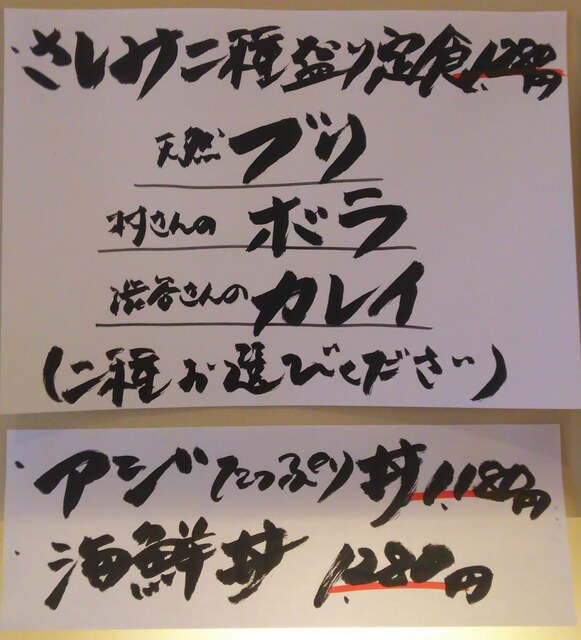 ・さしみ二種盛り定食1,280円
天然ブリ
村さんのボラ
渋谷さんのカレイ
(二種お選びください)
・アジたっぷり丼1,180円
・海鮮丼 1,280円